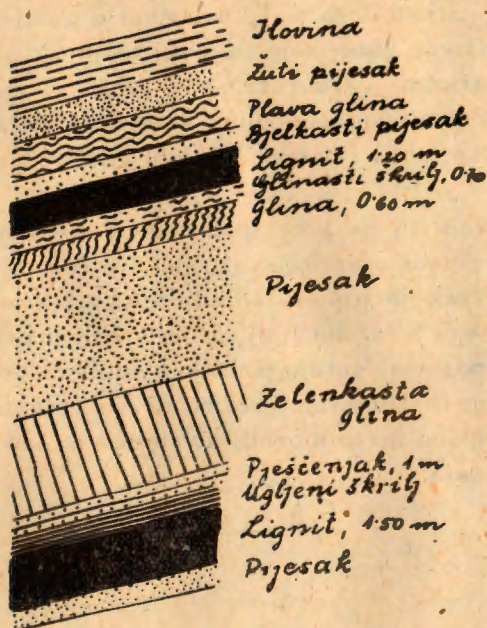 Ilovina
Žuti pijesak
Plava glina
Bjelkasti pijesak
Lignit, 1·20 m
Glinasti škrilj, 0·70
Glina, 0·60 m
Pijesak
Zelenkasta
glina
Pješčenjak, 1 m
Ugljeni škrilj
Lignit, 1·50 m
Pijesak